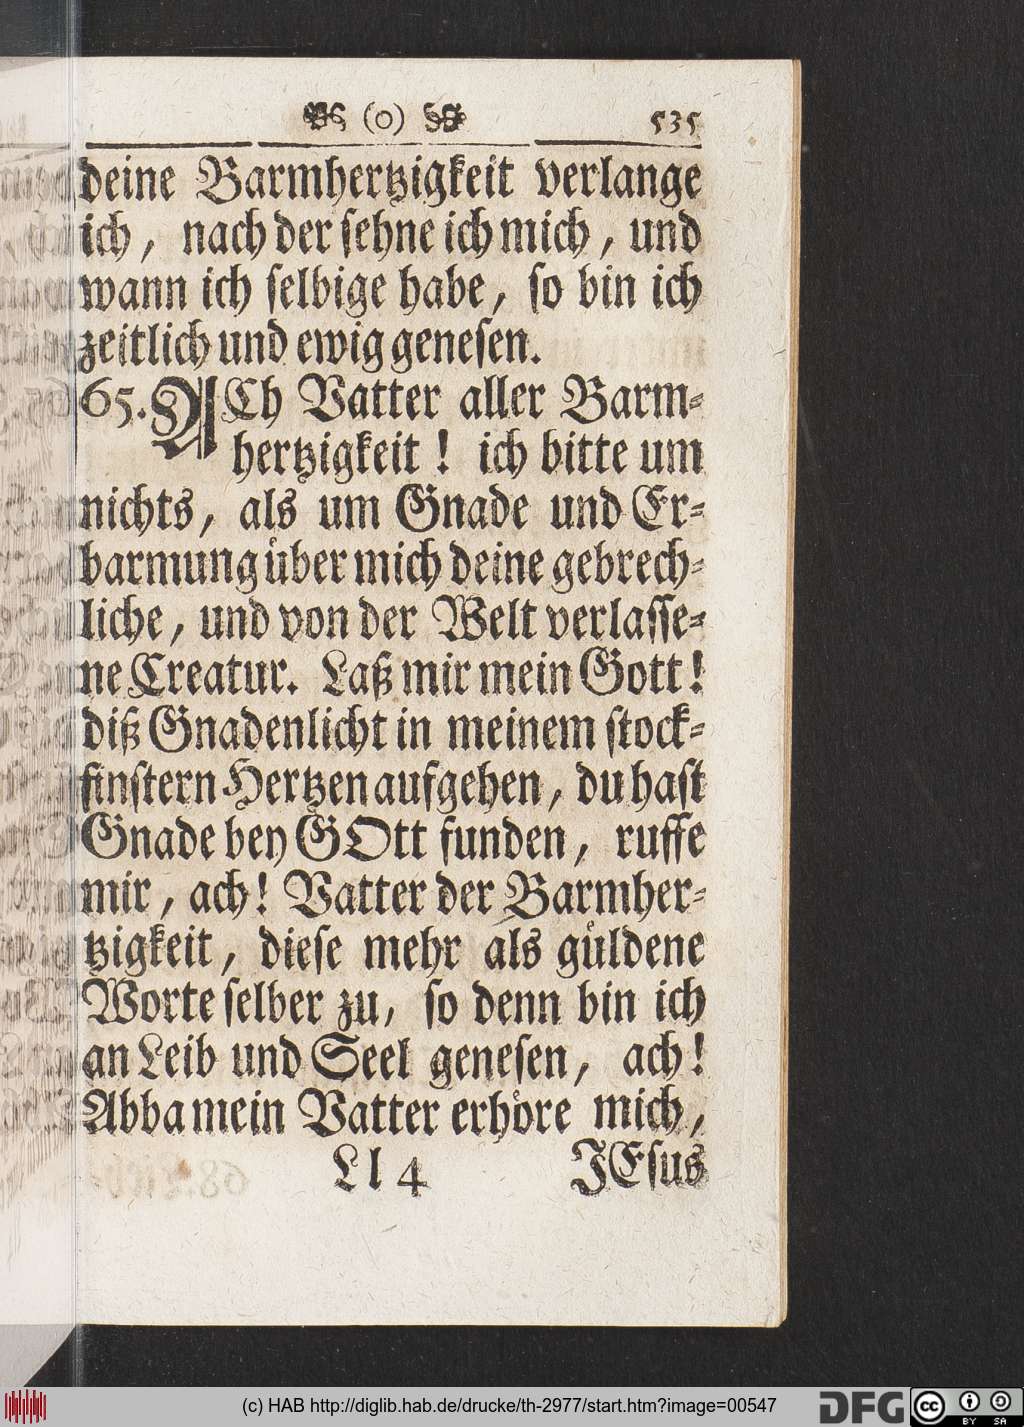 (o) 535
deine Barmhertzigkeit verlange
ich, nach der sehne ich mich, und
wann ich selbige habe, so bin ich
zeitlich und ewig genesen.
65. ACh Vatter aller Barm-
hertzigkeit! ich bitte um
nichts, als um Gnade und Er-
barmung über mich deine gebrech-
liche, und von der Welt verlasse-
ne Creatur. Laß mir mein Gott!
diß Gnadenlicht in meinem stock-
finstern Hertzen aufgehen, du hast
Gnade bey GOtt funden, ruffe
mir, ach! Vatter der Barmher-
tzigkeit, diese mehr als güldene
Worte selber zu, so denn bin ich
an Leib und Seel genesen, ach!
Abba mein Vatter erhöre mich,
Ll 4 JEsus
(c) HAB http://diglib.hab.de/drucke/th-2977/start.htm?image=00547
DFG cc BY SA